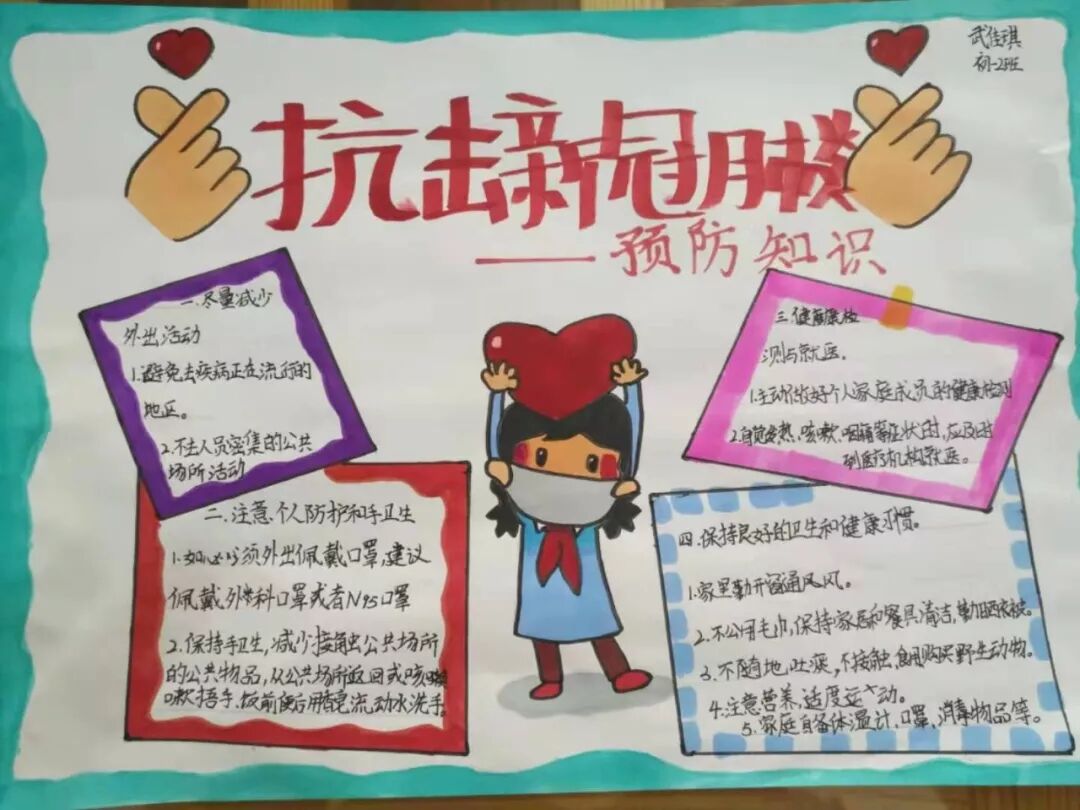 武佳琪
初一2班
抗击新冠肺炎
——预防知识
一.尽量减少
外出活动
1.避免去疾病正在流行的
地区。
2.不去人员密集的公共
场所活动
三.健康检
测与就医。
1.主动做好个人家庭成员的健康检测
2.自觉发热,咳嗽,咽痛等症状时,应及时
到医疗机构就医。
二.注意个人防护和手卫生
1.如必须外出佩戴口罩,建议
佩戴外科口罩或者N95口罩
2.保持手卫生,减少接触公共场所
的公共物品,从公共场所返回或咳
嗽捂手.饭前便后用流动水洗手。
四.保持良好的卫生和健康习惯。
1.家里勤开窗通风。
2.不公用毛巾,保持家居和餐具清洁,勤晒衣被。
3.不随地吐痰,不接触,食用购买野生动物。
4.注意营养,适度运动。
5.家庭自备体温计、口罩、消毒物品等。